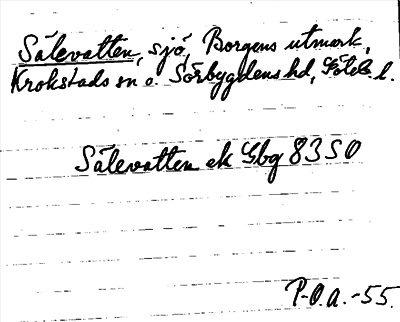 Sälevatten, sjö, Borgens utmark,
Krokstads sn o. Sörbygdens hd, Göteb. l.
Sälevatten ek Gbg 83 SO
P-O.A.-55.